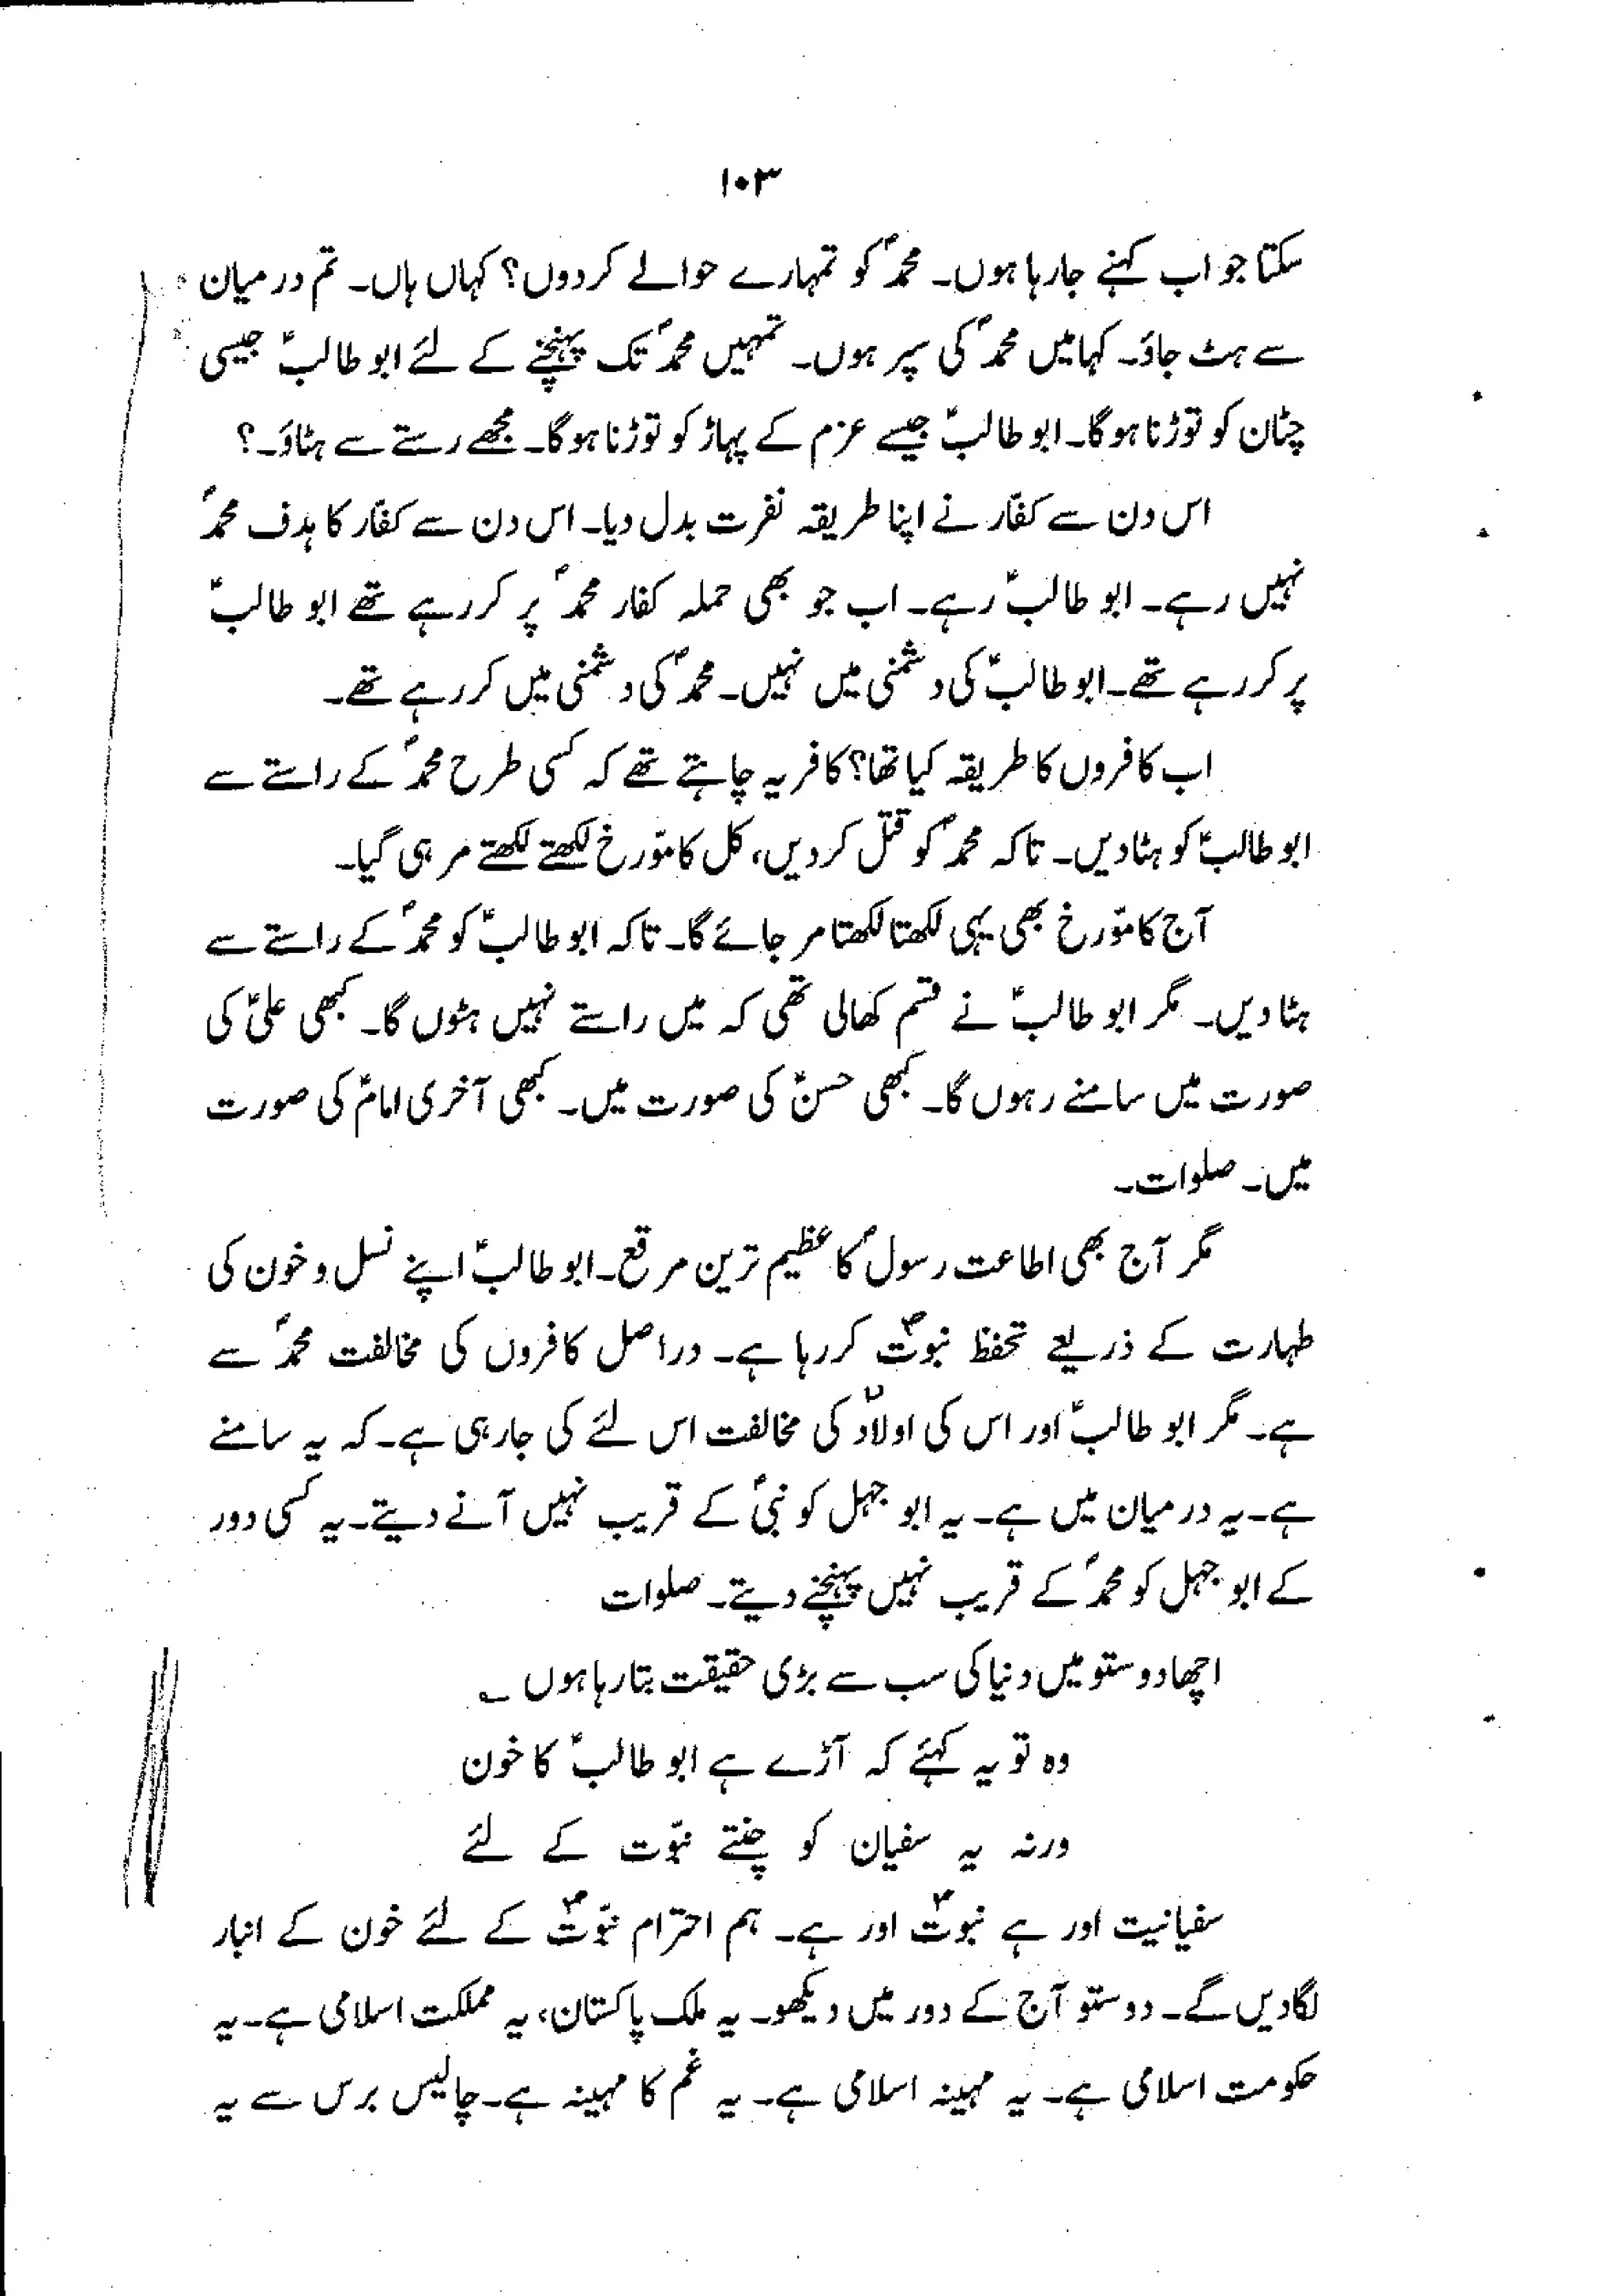 ۱۰۳
سکتا جو اب کہنے جارہا ہوں۔ محمدؐ کو تمہارے حوالے کردوں؟ کہاں ہاں۔ تم درمیان
سے ہٹ جاؤ۔ کہا میں محمدؐ کی سپر ہوں۔ تمہیں محمدؐ تک پہنچنے کے لئے ابو طالبؑ جیسی
چٹان کو توڑنا ہوگا۔ ابو طالبؑ جیسے عزم کے پہاڑ کو توڑنا ہوگا۔ مجھے رستے سے ہٹاؤ۔؟
اس دن سے کفّار نے اپنا طریقہ نفرت بدل دیا۔ اس دن سے کفّار کا ہدف محمدؐ
نہیں رہے۔ ابو طالبؑ رہے۔ اب جو بھی حملہ کفار محمدؐ پر کررہے تھے ابو طالبؑ
پر کررہے تھے۔ ابو طالبؑ کی دشمنی میں نہیں۔ محمدؐ کی دشمنی میں کررہے تھے۔
اب کافروں کا طریقہ کیا تھا؟ کافر یہ چاہتے تھے کہ کسی طرح محمدؐ کے راستے سے
ابو طالبؑ کو ہٹادیں۔ تاکہ محمدؐ کو قتل کردیں، کل کا مؤرخ لکھتے لکھتے مر ہی گیا۔
آج کا مؤرخ بھی یہی لکھتا لکھتا مر جائے گا۔ تاکہ ابو طالبؑ کو محمدؐ کے راستے سے
ہٹادیں۔ مگر ابو طالبؑ نے قسم کھالی تھی کہ میں راستے نہیں ہٹوں گا۔ کبھی علیؑ کی
صورت میں سامنے رہوں گا۔ کبھی حسنؑ کی صورت میں۔ کبھی آخری امامؑ کی صورت
میں۔ صلوات۔
مگر آج بھی اطاعت رسولؐ کا عظیم ترین مرقع۔ ابو طالبؑ اپنے نسل و خون کی
طہارت کے ذریعے تحفظ نبوتؐ کررہا ہے۔ دراصل کافروں کی مخالفت محمدؐ سے
ہے۔ مگر ابو طالبؑ اور اس کی اولادؑ کی مخالفت اس لئے کی جارہی ہے۔ کہ یہ سامنے
ہے۔ یہ درمیان میں ہے۔ یہ ابو جہل کو نبیؐ کے قریب نہیں آنے دیتے۔ یہ کسی دور
کے ابو جہل کو محمدؐ کے قریب نہیں پہنچنے دیتے۔ صلوات
اچھا دوستو میں دنیا کی سب سے بڑی حقیقت بتارہا ہوں ؎
وہ تو یہ کہئے کہ آڑے ہے ابو طالبؑ کا خون
ورنہ یہ سفیان کو چنتے نبوّت کے لئے
سفیانیت اور ہے نبوتؐ اور ہے۔ ہم احترام نبوّتؐ کے لئے خون کے انبار
لگادیں گے۔ دوستو آج کے دور میں دیکھو۔ یہ ملک پاکستان، یہ مملکت اسلامی ہے۔ یہ
حکومت اسلامی ہے۔ یہ مہینہ اسلامی ہے۔ یہ غم کا مہینہ ہے۔ چالیس برس سے یہ